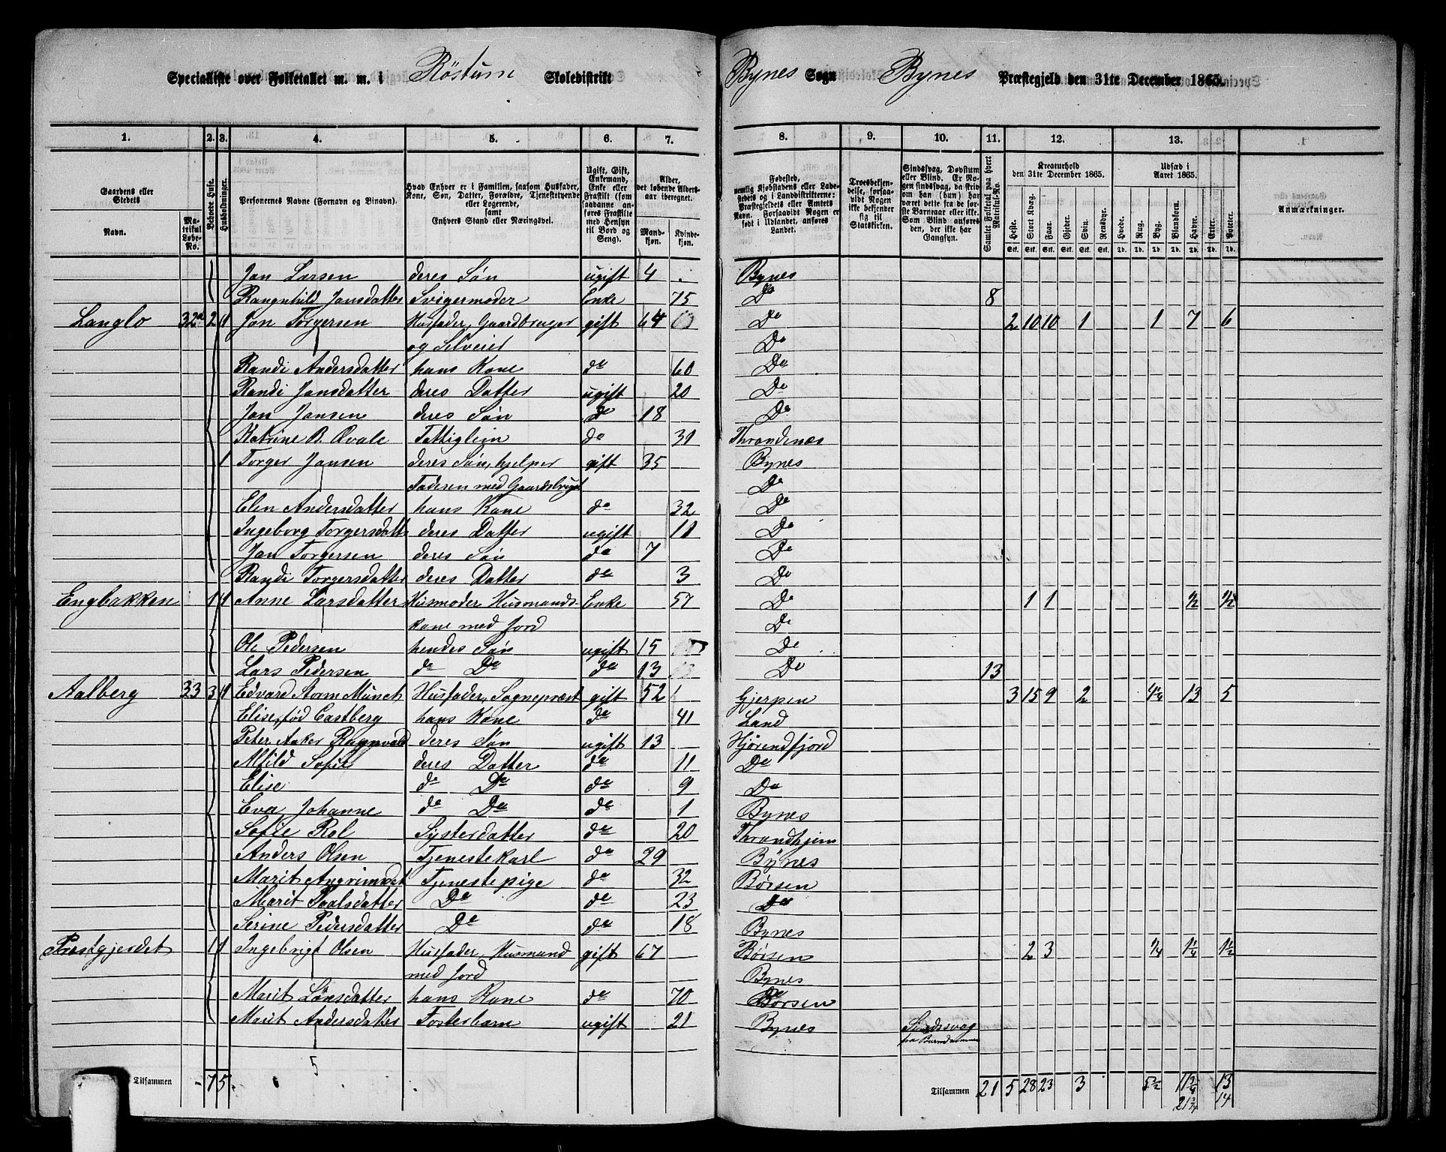 Specialliste over Folketallet m. m. i Röstum Skoledistrikt Bynes Sogn Bynes Præstegjeld den 31te December 1865.
1. 2. 3. 4. 5. 6. 7. 8. 9. 10. 11. 12. 13. 1.
Gaardens eller Stedets Navn.
Matrikul Løbe-No.
Beboede Huse.
Husholdninger.
Personernes Navne (Fornavn og Binavn).
Hvad Enhver er i Familien, saasom Husfader, Kone, Søn, Datter, Forældre, Tjenestetyende eller Logerende, samt Enhvers Stand eller Næringsvei.
Ugift, Gift, Enkemand, Enke eller Fraskilt
Alder, det løbende Alders-aar iberegnet.
Mandkjøn. Kvindekjøn.
Kreaturhold den 31te December 1865.
Udsæd i Aaret 1865.
Heste. Stort Kvæg. Faar. Gjeder. Svin. Rensdyr. Hvede. Rug. Byg. Blandkorn. Havre. Erter. Poteter.
Anmærkninger.
Jon Larsen deres Søn ugift 4 Bynes
Rangnhild Jonsdatter Svigermoder Enke 75 Do 8
Langlo 32a 2 1 Jon Torgersen Husfader, Gaardbruger gift 64 Do 2 10 10 1 1 7 6
og Selveier Do
Randi Andersdatter hans Kone do 60 Do
Randi Jonsdatter deres Datter ugift 20 Do
Jon Jonsen deres Søn do 18 Do
Katrine B. Qvale Fattiglegn do 31 Throndenæs
1 Torger Jonsen deres Søn, hjelper gift 35 Bynes
Faderen med Gaardsbruget Do
Elen Andersdatter hans Kone do 32 Do
Ingeborg Torgersdatter deres Datter ugift 11 Do
Jon Torgersen deres Søn do 7 Do
Randi Torgersdatter deres Datter do 3 Do
Engbakken 1 1 Anne Larsdatter Husmoder, Husmands- Enke 57 Do 1 1 1/2 1½
kone med Jord Do
Ole Pedersen hendes Søn ugift 15 Do
Lars Pedersen do Do do 13 Do 13
Aalberg 33 3 1 Edvard Storm Munch Husfader, Sognepræst gift 52 Gjerpen 3 15 9 2 4¼ 13 5
Elise, fød Castberg hans Kone do 41 Land
Peter Aaker Ragnvald deres Søn ugift 13 Hjørendfjord
Mtild Sofie deres Datter do 11 Do
Elise do Do do 9 Do
Eva Johanne do Do do 1 Bynes
Sofie Rol Systerdatter do 20 Throndhjem
Anders Olsen Tjenestekarl do 29 Bynes
Marit Tjenestepige do 32 Börsen
Marit Paalsdatter Do do 23 Do
Serine Pedersdatter Do do 18 Bynes
Præstgjerdet 1 1 Ingebrigt Olsen Husfader, Husmand gift 67 Börsen 2 3 ¼ 1¼ 1½
med Jord Bynes
Marit Lönsdatter hans Kone do 70 Börsen
Marit Andersdatter Fosterbarn ugift 21 Bynes Sindssvag
fra Barndommen
5
Tilsammen 7 5 Tilsammen 21 5 28 23 3 5½ 13
21¾ 14